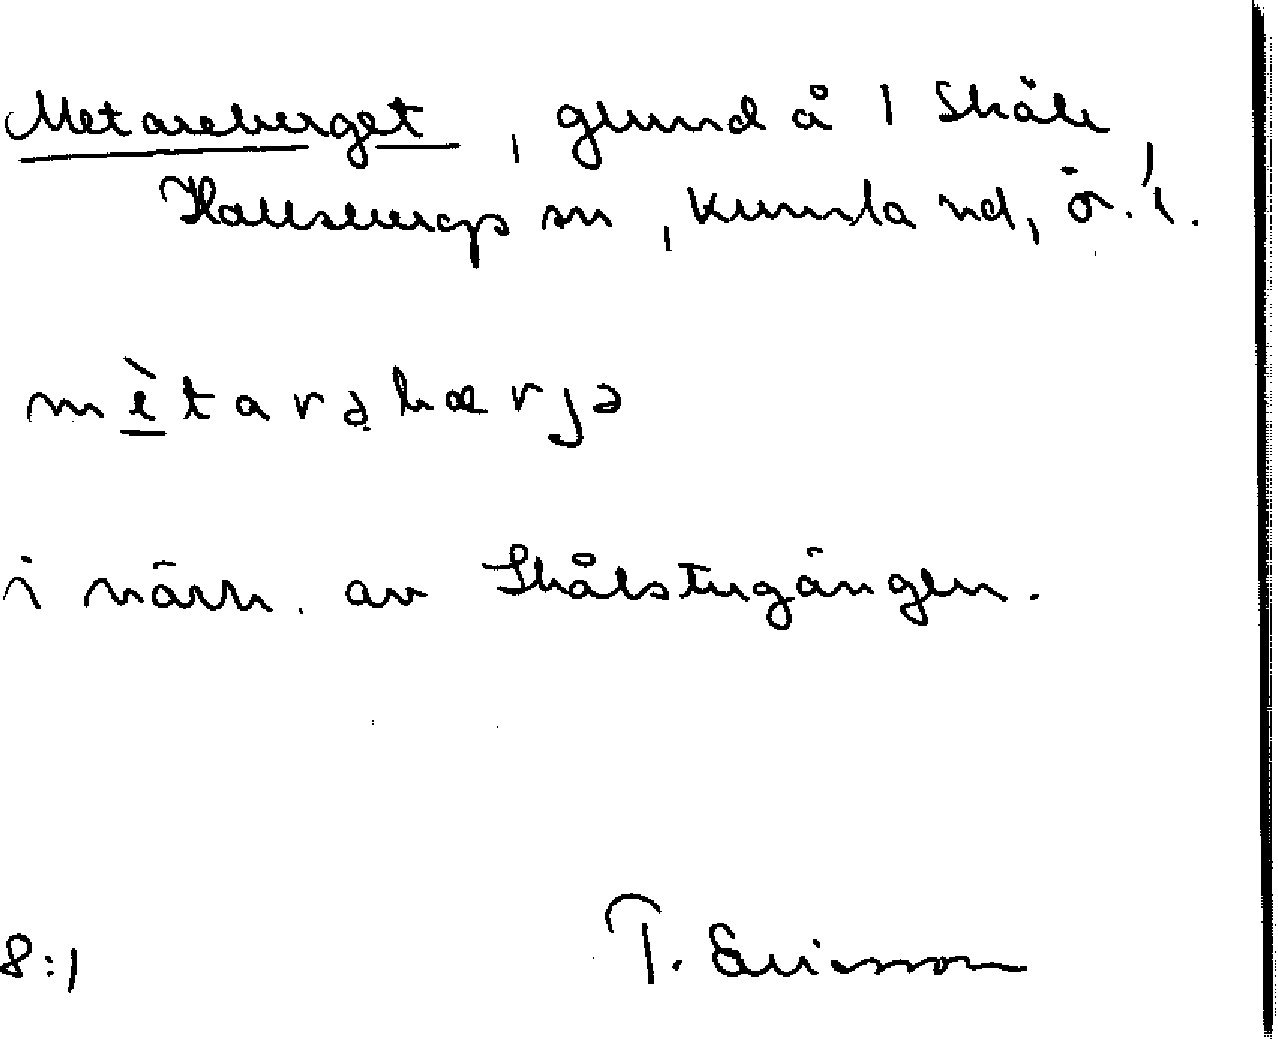 Metareberget, grund å 1 Skåle
Hallsbergs sn, Kumla hd, Ö. l.
mètarəbærjə
i närh. av Skålstugängen.
8:1 T. Ericsson